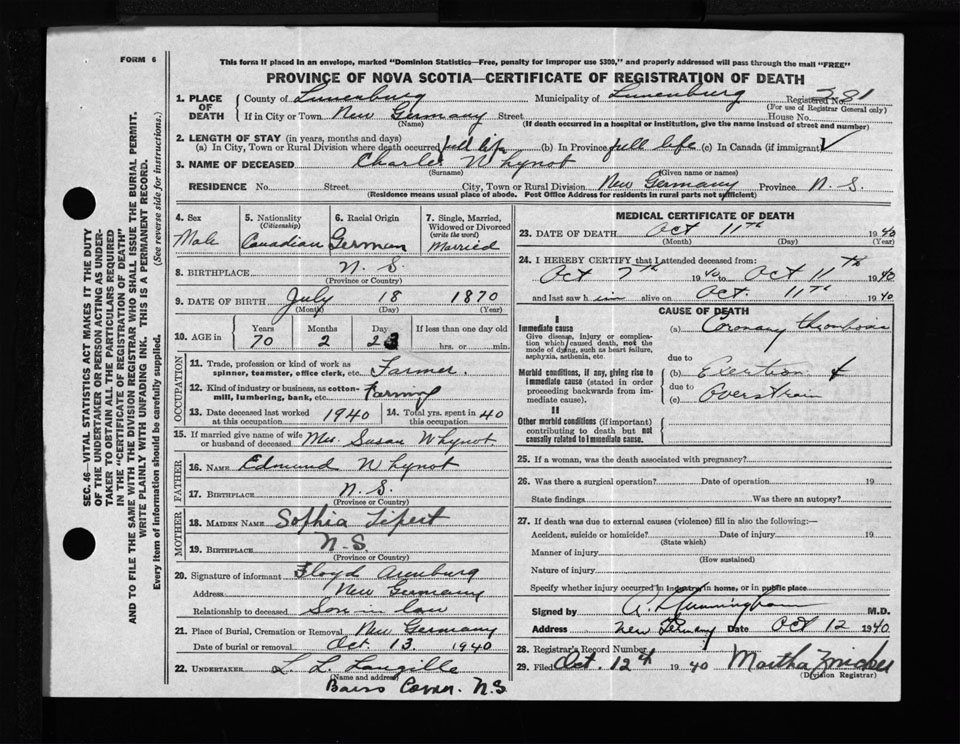 FORM 6
This form if placed in an envelope, marked "Dominion Statistics—Free, penalty for improper use $300," and properly addressed will pass through the mail "FREE"
PROVINCE OF NOVA SCOTIA—CERTIFICATE OF REGISTRATION OF DEATH
1. PLACE OF DEATH
County of Lunenburg Municipality of Lunenburg Registered No. 381
(For use of Registrar General only)
If in City or Town New Germany Street House No.
(Name) (If death occurred in a hospital or institution, give the name instead of street and number)
2. LENGTH OF STAY (in years, months and days)
(a) In City, Town or Rural Division where death occurred full life (b) In Province full life (c) In Canada (if immigrant) ✓
3. NAME OF DECEASED Charles Whynot
(Surname) (Given name or names)
RESIDENCE No. Street City, Town or Rural Division New Germany Province N. S.
(Residence means usual place of abode. Post Office Address for residents in rural parts not sufficient)
4. Sex
Male
5. Nationality
(Citizenship)
Canadian
6. Racial Origin
German
7. Single, Married, Widowed or Divorced
(write the word)
Married
8. BIRTHPLACE N. S.
(Province or Country)
9. DATE OF BIRTH July 18 1870
(Month) (Day) (Year)
10. AGE in
Years Months Days If less than one day old
70 2 23 hrs. or min.
OCCUPATION
11. Trade, profession or kind of work as
spinner, teamster, office clerk, etc. Farmer.
12. Kind of industry or business, as cotton-
mill, lumbering, bank, etc. Farming
13. Date deceased last worked
at this occupation 1940
14. Total yrs. spent in
this occupation 40
15. If married give name of wife
or husband of deceased Mrs. Susan Whynot.
FATHER
16. NAME Edmund Whynot
17. BIRTHPLACE N. S.
(Province or Country)
MOTHER
18. MAIDEN NAME Sophia
19. BIRTHPLACE N. S.
(Province or Country)
20. Signature of informant Floyd
Address New Germany
Relationship to deceased Son-in-law
21. Place of Burial, Cremation or Removal New Germany
Date of burial or removal Oct. 13. 1940
22. UNDERTAKER L. L. Langille
(Name and address)
Barss Corner. N.S
MEDICAL CERTIFICATE OF DEATH
23. DATE OF DEATH Oct 11th 1940
(Month) (Day) (Year)
24. I HEREBY CERTIFY that I attended deceased from:
Oct 7th 1940 to Oct 11th 1940
and last saw h im alive on Oct. 11th 1940
CAUSE OF DEATH
I
Immediate cause
Give disease, injury or complication which caused death, not the mode of dying, such as heart failure, asphyxia, asthenia, etc.
(a) Coronary thrombosis
due to
Morbid conditions, if any, giving rise to immediate cause (stated in order proceeding backwards from immediate cause).
(b) Exertion &
due to
(c) Overstrain
II
Other morbid conditions (if important) contributing to death but not causally related to immediate cause.
25. If a woman, was the death associated with pregnancy?
26. Was there a surgical operation? Date of operation 19
State findings Was there an autopsy?
27. If death was due to external causes (violence) fill in also the following:—
Accident, suicide or homicide? Date of injury 19
(State which)
Manner of injury
(How sustained)
Nature of injury
Specify whether injury occurred in industry, in home, or in public place
Signed by Cunningham M.D.
Address New Germany Date Oct 12 1940
28. Registrar's Record Number
29. Filed Oct. 12th 1940 Martha Zwicker
(Division Registrar)
SEC. 46—VITAL STATISTICS ACT MAKES IT THE DUTY
OF THE UNDERTAKER OR PERSON ACTING AS UNDER-
TAKER TO OBTAIN ALL THE PARTICULARS REQUIRED
IN THE "CERTIFICATE OF REGISTRATION OF DEATH"
AND TO FILE THE SAME WITH THE DIVISION REGISTRAR WHO SHALL ISSUE THE BURIAL PERMIT.
WRITE PLAINLY WITH UNFADING INK. THIS IS A PERMANENT RECORD.
Every item of information should be carefully supplied. (See reverse side for instructions.)